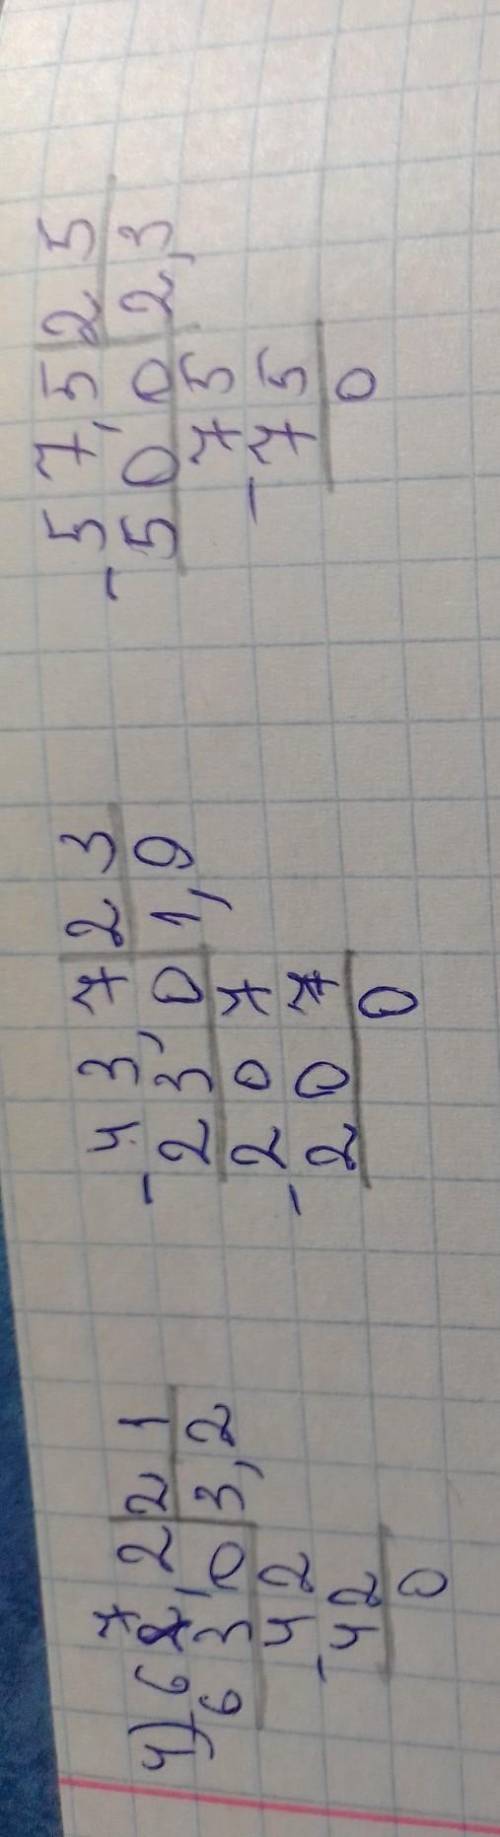 4) 67,2 21
63,0 3,2
42
-42
0
-43,7 23
23,0 1,9
207
-207
0
-57,5 25
500 2,3
75
-75
0